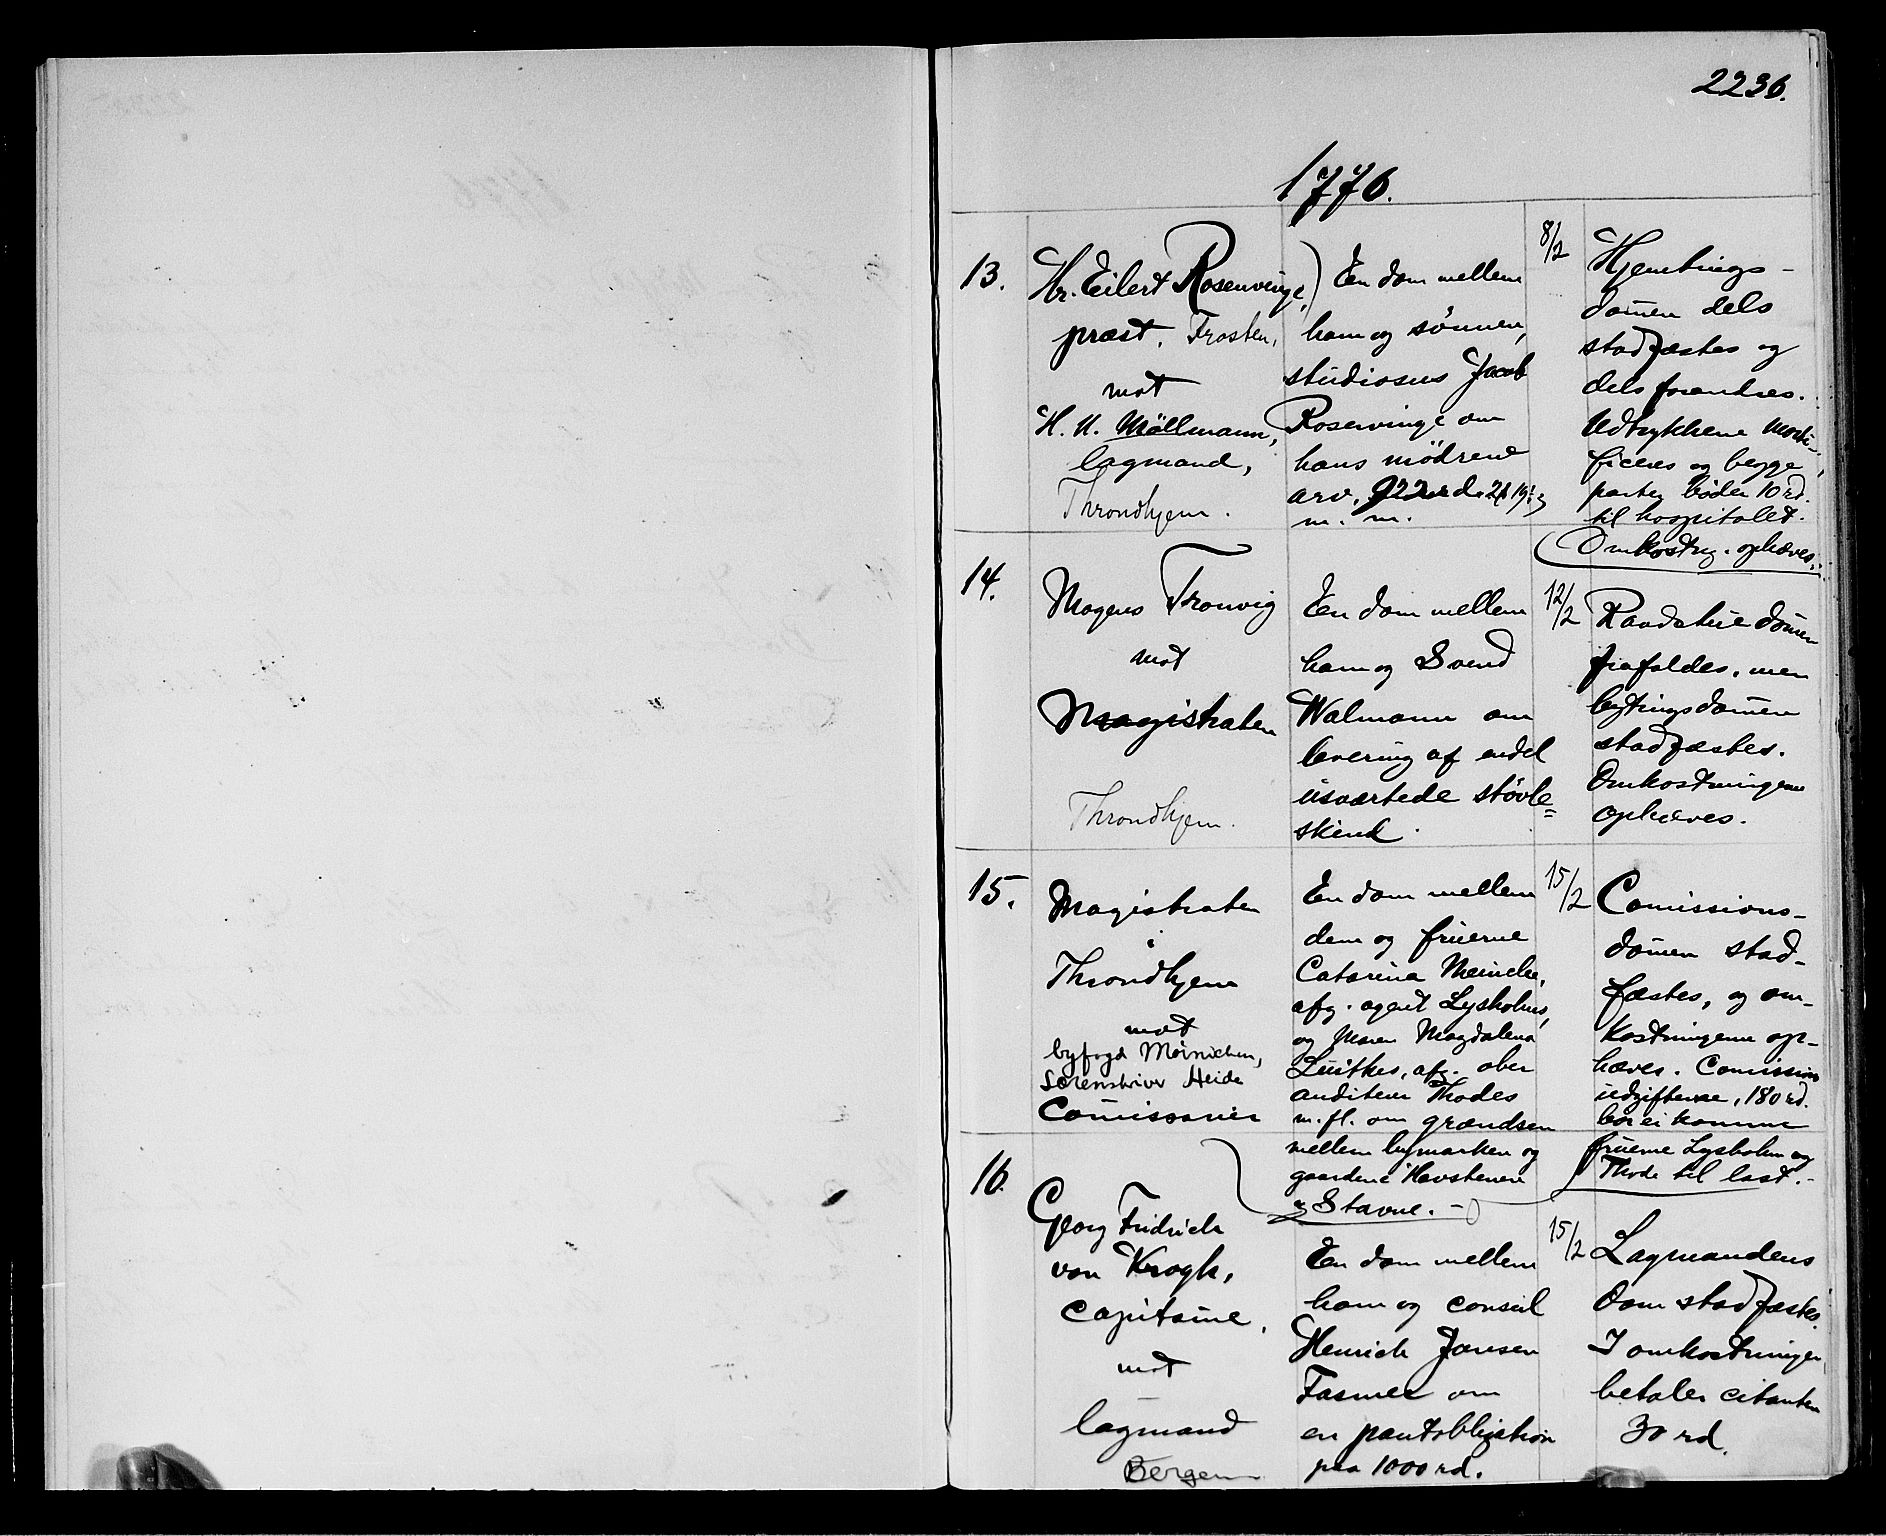 2236.
1776.
13.
Hr. Eilert Rosenvinge,
præst, Frosten,
mot
H. U. Möllmann,
lagmand,
Throndhjem.
En dom mellem
ham og sønnen,
studiosus Jacob
Rosenvinge om
hans mødrene
arv, 922 rd.
m. m.
8/2
Hjemtings-
domen dels
stadfæstes og
dels forandres.
Udtrykkene morti-
ficeres og begge
parter bøder 10 rd.
til hospitalet.
Omkostng. ophæves.
14.
Mogens Tronvig
mot
Magistraten
Throndhjem.
En dom mellem
ham og Svend
Walmann om
levering af endel
usværtede støvle=
skind.
12/2
Raadstuedomen
frafaldes, men
bytingsdomen
stadfæstes.
Omkostningene
ophæves.
15.
Magistraten
i
Throndhjem
mot
byfogd Moinichen,
sorenskriver Heide
Comissarier
En dom mellem
dem og fruerne
Catarina Meincke,
afg. agent Lysholms,
og Maren Magdalena
Luitkes, afg. ober
auditeur Thodes
m. fl. om grændsen
mellem bymarken og
gaardene Havstenen
og Stavne. -
15/2
Comissions-
domen stad-
fæstes, og om-
kostningene op-
hæves. Comission
udgifterne, 180 rd.
bør ei komme
fruerne Lysholm og
Thode til last. -
16.
Georg Fridrich
von Krogh,
capitaine,
mot
lagmand
Bergen
En dom mellem
ham og consul
Henrich Jansen
Fasmer om
en pantobligation
paa 1000 rd.
15/2
Lagmandens
dom stadfæstes.
I omkostninger
betaler citanten
30 rd.